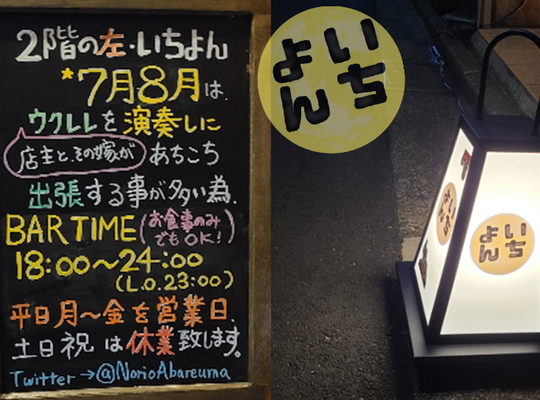 2階の左・いちよん
*7月8月は、
ウクレレを演奏しに
店主と、その嫁が あちこち
出張する事が多い為、
BAR TIME (お食事のみでもOK!)
18:00〜24:00
(L.O.23:00)
平日月〜金を営業日、
土日祝は休業致します。
Twitter→@NorioAbareuma
いち
よん
いち
よん
いち
よん